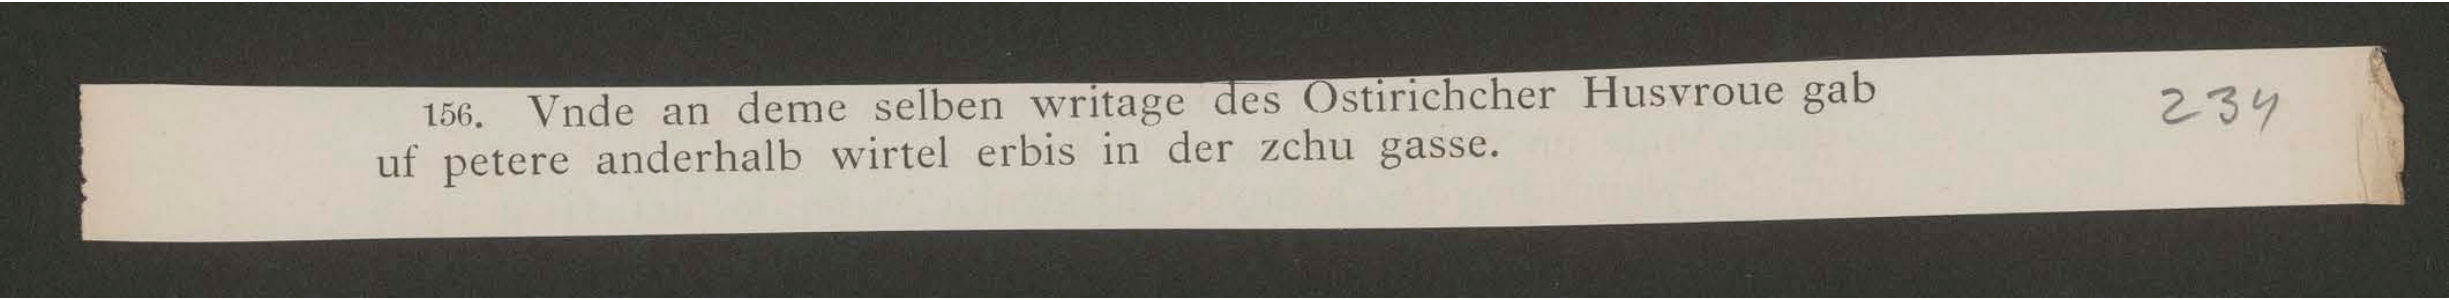 156. Vnde an deme selben writage des Ostirichcher Husvroue gab
uf petere anderhalb wirtel erbis in der zchu gasse.
234